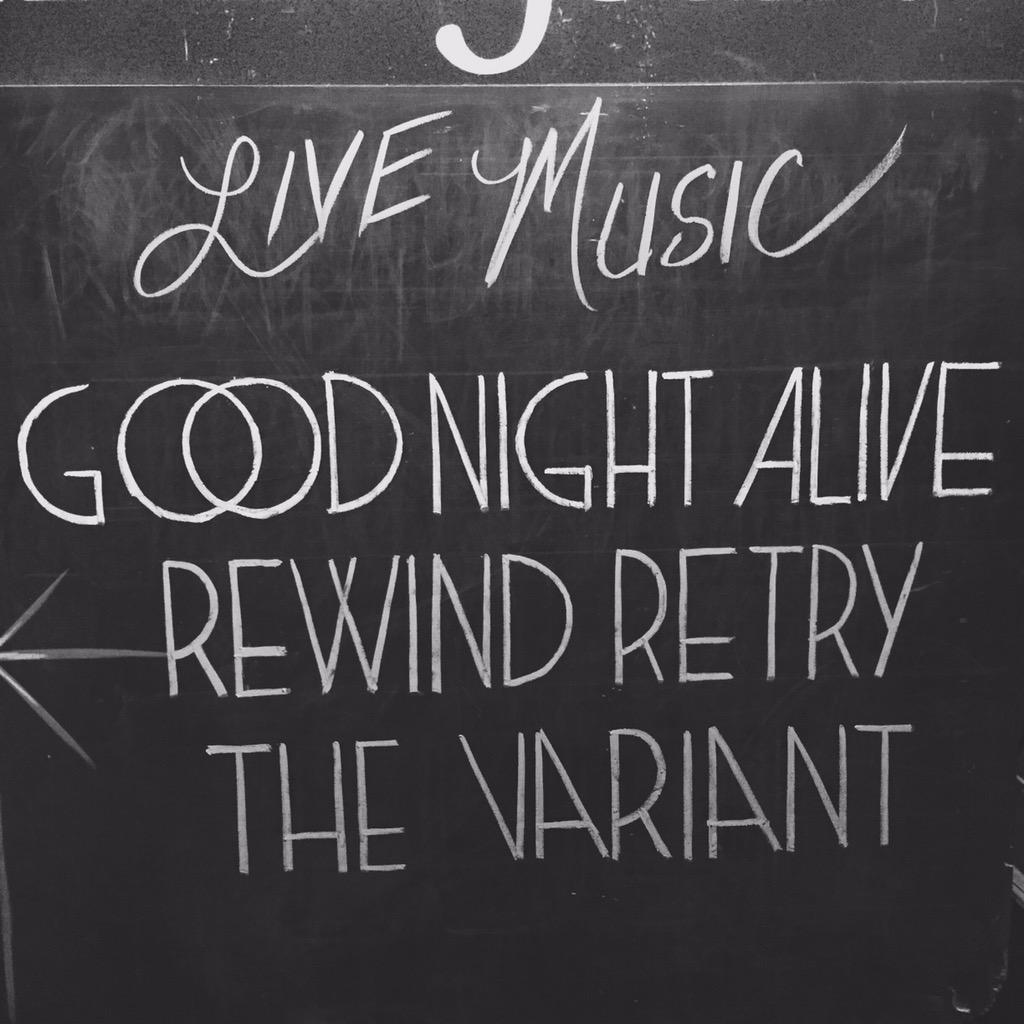 LIVE MUSIC
GOOD NIGHT ALIVE
REWIND RETRY
THE VARIANT